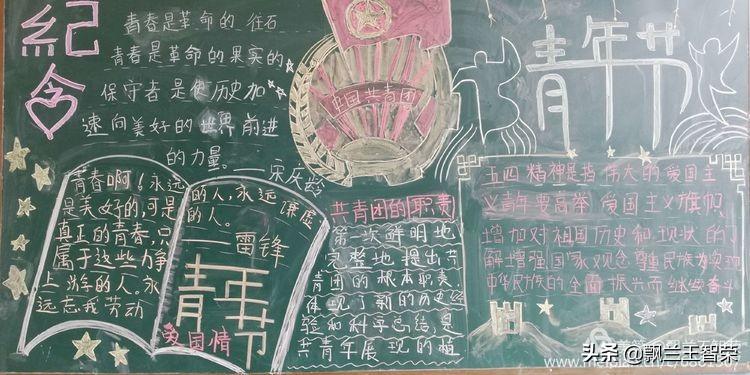 紀念
青春是革命的柱石
青春是革命的果实的
保守者是使历史加
速向美好的世界前进
的力量。——宋庆龄
中国共青团
青年节
青春啊！永远
是美好的,可是
真正的青春,只
属于这些力争
上游的人。永
远忘我劳动
的人,永远谦虚
的人。
——雷锋
青年节
爱国情
共青团的职责
第一次鲜明地
完整地提出共
青团的根本职责.
体现了新的历史
验和科学总结是
共青年展现的植
五四精神是指伟大的爱国主
义青年要高举爱国主义旗帜
增加对祖国历史和现状的了
解增强国家观念尊重民族为实现
中华民族的全面振兴而继续奋斗
头条@飘兰王智荣